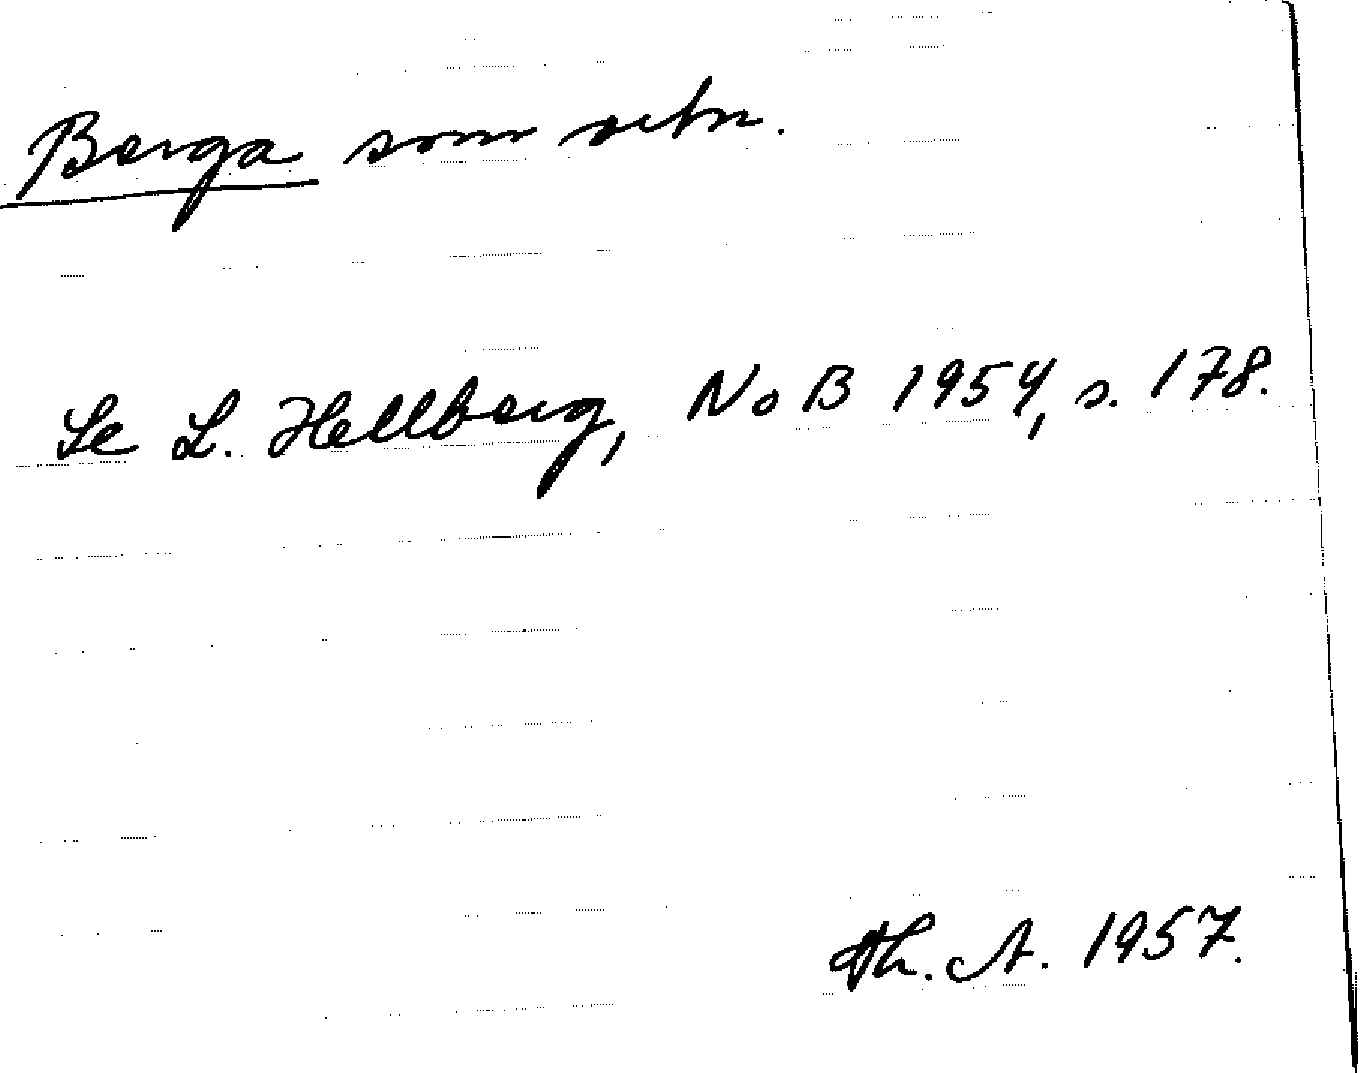 Berga som ortn.
Se L. Hellberg, NoB 1954, s. 178.
Th. A. 1957.